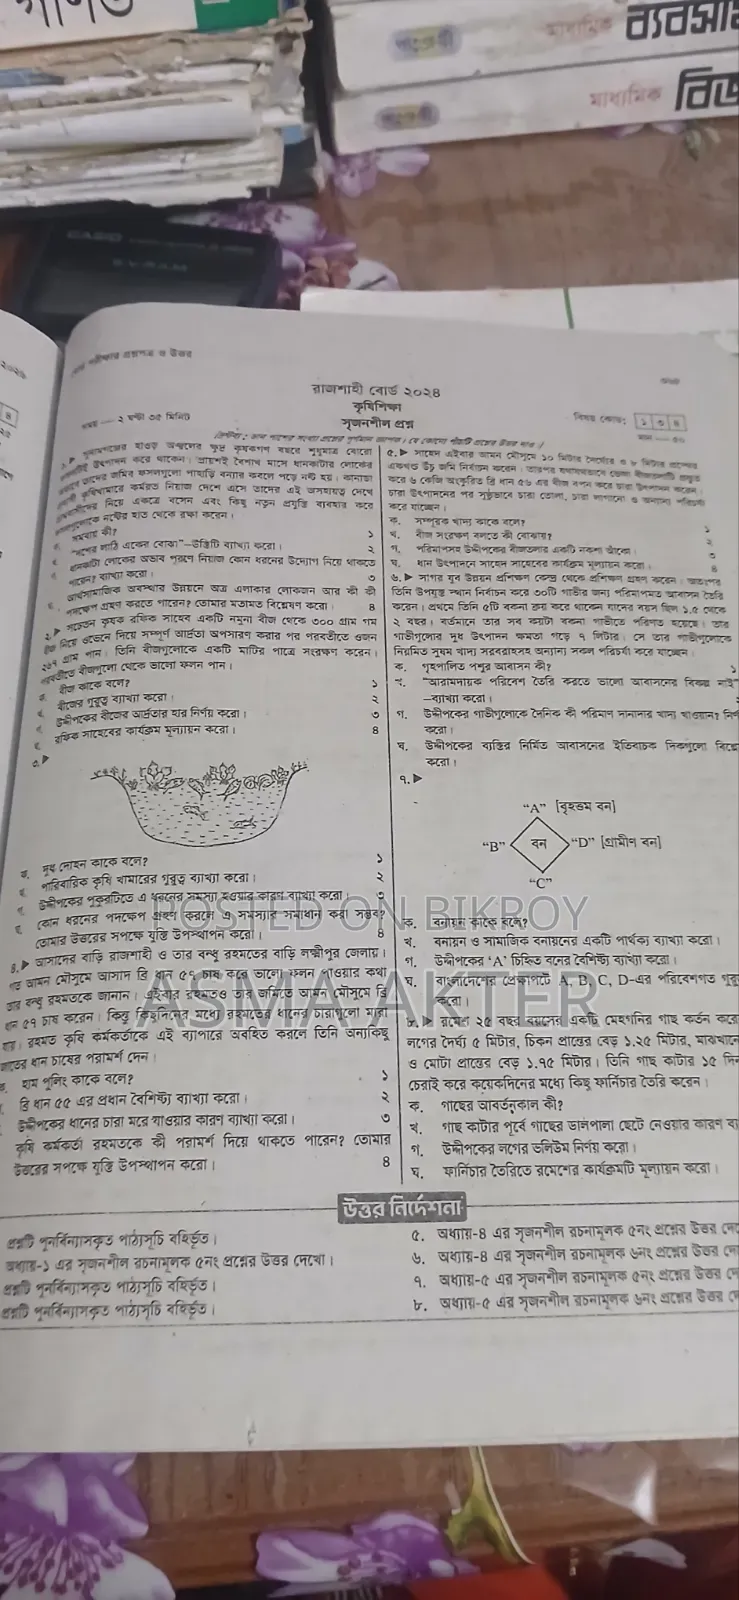 গণিত
ব্যবসায়
মাধ্যমিক
মাধ্যমিক
CASIO
রাজশাহী বোর্ড ২০২৪
কৃষিশিক্ষা
সৃজনশীল প্রশ্ন
সময় — ২ ঘন্টা ৩৫ মিনিট
বিষয় কোড: ১ ৩ ৪
মান — ৫০
ঘটনাগুলোকে নষ্টের হাত থেকে রক্ষা করেন।
ক. সমবায় কী? ১
খ. “দশের লাঠি একের বোঝা”–উক্তিটি ব্যাখ্যা করো। ২
গ. ধানকাটা লোকের অভাব পূরণে নিয়াজ কোন ধরনের উদ্যোগ নিয়ে থাকতে
পারেন? ব্যাখ্যা করো। ৩
ঘ. আর্থসামাজিক অবস্থার উন্নয়নে অত্র এলাকার লোকজন আর কী কী
পদক্ষেপ গ্রহণ করতে পারেন? তোমার মতামত বিশ্লেষণ করো। ৪
২.▶ সচেতন কৃষক রফিক সাহেব একটি নমুনা বীজ থেকে ৩০০ গ্রাম গম
বীজ নিয়ে ওভেনে দিয়ে সম্পূর্ণ আর্দ্রতা অপসারণ করার পর পরবর্তীতে ওজন
২৬৭ গ্রাম পান। তিনি বীজগুলোকে একটি মাটির পাত্রে সংরক্ষণ করেন।
পরবর্তীতে বীজগুলো থেকে ভালো ফলন পান।
ক. বীজ কাকে বলে? ১
খ. বীজের গুরুত্ব ব্যাখ্যা করো। ২
গ. উদ্দীপকের বীজের আর্দ্রতার হার নির্ণয় করো। ৩
ঘ. রফিক সাহেবের কার্যক্রম মূল্যায়ন করো। ৪
৩.▶
ক. দুধ দোহন কাকে বলে? ১
খ. পারিবারিক কৃষি খামারের গুরুত্ব ব্যাখ্যা করো। ২
গ. উদ্দীপকের পুকুরটিতে এ ধরনের সমস্যা হওয়ার কারণ ব্যাখ্যা করো। ৩
ঘ. কোন ধরনের পদক্ষেপ গ্রহণ করলে এ সমস্যার সমাধান করা সম্ভব?
তোমার উত্তরের সপক্ষে যুক্তি উপস্থাপন করো। ৪
৪.▶ আসাদের বাড়ি রাজশাহী ও তার বন্ধু রহমতের বাড়ি লক্ষ্মীপুর জেলায়।
গত আমন মৌসুমে আসাদ ব্রি ধান ৫৭ চাষ করে ভালো ফলন পাওয়ার কথা
তার বন্ধু রহমতকে জানান। এইবার রহমতও তার জমিতে আমন মৌসুমে ব্রি
ধান ৫৭ চাষ করেন। কিন্তু কিছুদিনের মধ্যে রহমতের ধানের চারাগুলো মারা
যায়। রহমত কৃষি কর্মকর্তাকে এই ব্যাপারে অবহিত করলে তিনি অন্যকিছু
জাতের ধান চাষের পরামর্শ দেন।
ক. হাম পুলিং কাকে বলে? ১
ব্রি ধান ৫৫ এর প্রধান বৈশিষ্ট্য ব্যাখ্যা করো। ২
উদ্দীপকের ধানের চারা মরে যাওয়ার কারণ ব্যাখ্যা করো। ৩
কৃষি কর্মকর্তা রহমতকে কী পরামর্শ দিয়ে থাকতে পারেন? তোমার
উত্তরের সপক্ষে যুক্তি উপস্থাপন করো। ৪
৫.▶ সাহেদ এইবার আমন মৌসুমে ১০ মিটার দৈর্ঘ্যের ও ৮ মিটার প্রস্থের
একখণ্ড উঁচু জমি নির্বাচন করেন। তারপর যথাযথভাবে ভেজা বীজতলাটি প্রস্তুত
করে ৬ কেজি অংকুরিত ব্রি ধান ৫৬ এর বীজ বপন করে চারা উৎপাদন করেন।
চারা উৎপাদনের পর সুষ্ঠুভাবে চারা তোলা, চারা লাগানো ও অন্যান্য পরিচর্যা
করে যাচ্ছেন।
ক. সম্পূরক খাদ্য কাকে বলে? ১
খ. বীজ সংরক্ষণ বলতে কী বোঝায়? ২
গ. পরিমাপসহ উদ্দীপকের বীজতলার একটি নকশা আঁকো। ৩
ঘ. ধান উৎপাদনে সাহেদ সাহেবের কার্যক্রম মূল্যায়ন করো। ৪
৬.▶ সাগর যুব উন্নয়ন প্রশিক্ষণ কেন্দ্র থেকে প্রশিক্ষণ গ্রহণ করেন। অতঃপর
তিনি উপযুক্ত স্থান নির্বাচন করে ৩০টি গাভীর জন্য পরিমাপমত আবাসন তৈরি
করেন। প্রথমে তিনি ৫টি বকনা ক্রয় করে থাকেন যাদের বয়স ছিল ১.৫ থেকে
২ বছর। বর্তমানে তার সব কয়টা বকনা গাভীতে পরিণত হয়েছে। তার
গাভীগুলোর দুধ উৎপাদন ক্ষমতা গড়ে ৭ লিটার। সে তার গাভীগুলোকে
নিয়মিত সুষম খাদ্য সরবরাহসহ অন্যান্য সকল পরিচর্যা করে যাচ্ছেন।
ক. গৃহপালিত পশুর আবাসন কী? ১
খ. “আরামদায়ক পরিবেশ তৈরি করতে ভালো আবাসনের বিকল্প নাই”
–ব্যাখ্যা করো।
গ. উদ্দীপকের গাভীগুলোকে দৈনিক কী পরিমাণ দানাদার খাদ্য খাওয়ান? নির্ণ
করো।
ঘ. উদ্দীপকের ব্যক্তির নির্মিত আবাসনের ইতিবাচক দিকগুলো বিশ্লে
করো।
৭.▶
“A” [বৃহত্তম বন]
“B” বন “D” [গ্রামীণ বন]
“C”
ক. বনায়ন কাকে বলে?
খ. বনায়ন ও সামাজিক বনায়নের একটি পার্থক্য ব্যাখ্যা করো।
গ. উদ্দীপকের ‘A’ চিহ্নিত বনের বৈশিষ্ট্য ব্যাখ্যা করো।
ঘ. বাংলাদেশের প্রেক্ষাপটে A, B, C, D-এর পরিবেশগত গুরু
করো।
৮.▶ রমেশ ২৫ বছর বয়সের একটি মেহগনির গাছ কর্তন করে
লগের দৈর্ঘ্য ৫ মিটার, চিকন প্রান্তের বেড় ১.২৫ মিটার, মাঝখানে
ও মোটা প্রান্তের বেড় ১.৭৫ মিটার। তিনি গাছ কাটার ১৫ দিন
চেরাই করে কয়েকদিনের মধ্যে কিছু ফার্নিচার তৈরি করেন।
ক. গাছের আবর্তনকাল কী?
খ. গাছ কাটার পূর্বে গাছের ডালপালা ছেটে নেওয়ার কারণ ব্যা
গ. উদ্দীপকের লগের ভলিউম নির্ণয় করো।
ঘ. ফার্নিচার তৈরিতে রমেশের কার্যক্রমটি মূল্যায়ন করো।
উত্তর নির্দেশনা
প্রশ্নটি পুনর্বিন্যাসকৃত পাঠ্যসূচি বহির্ভূত।
অধ্যায়-১ এর সৃজনশীল রচনামূলক ৫নং প্রশ্নের উত্তর দেখো।
প্রশ্নটি পুনর্বিন্যাসকৃত পাঠ্যসূচি বহির্ভূত।
প্রশ্নটি পুনর্বিন্যাসকৃত পাঠ্যসূচি বহির্ভূত।
৫. অধ্যায়-৪ এর সৃজনশীল রচনামূলক ৫নং প্রশ্নের উত্তর দে
৬. অধ্যায়-৪ এর সৃজনশীল রচনামূলক ৬নং প্রশ্নের উত্তর দে
৭. অধ্যায়-৫ এর সৃজনশীল রচনামূলক ৫নং প্রশ্নের উত্তর দে
৮. অধ্যায়-৫ এর সৃজনশীল রচনামূলক ৬নং প্রশ্নের উত্তর দে
POSTED ON BIKROY
ASMA AKTER